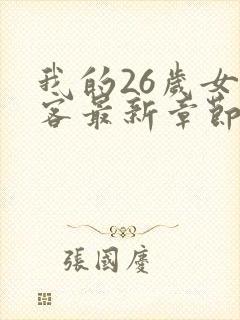 我的26歲女
客最新章節
張國慶